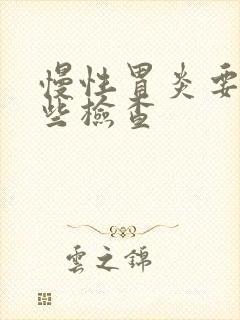 慢性胃炎要
些檢查
雲之錦